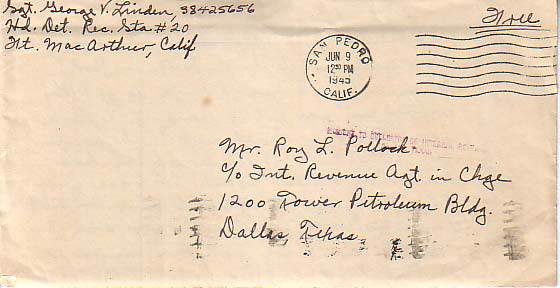 Sgt. George V. Linden, 38425656
Hd. Det. Rec. Sta. #20
Ft. MacArthur, Calif.
Free
SAN PEDRO
JUN 9
12 30 PM
1945
CALIF.
Mr. Roy L. Pollock
c/o Int. Revenue Agt. in Chge
1200 Tower Petroleum Bldg.
Dallas, Texas.